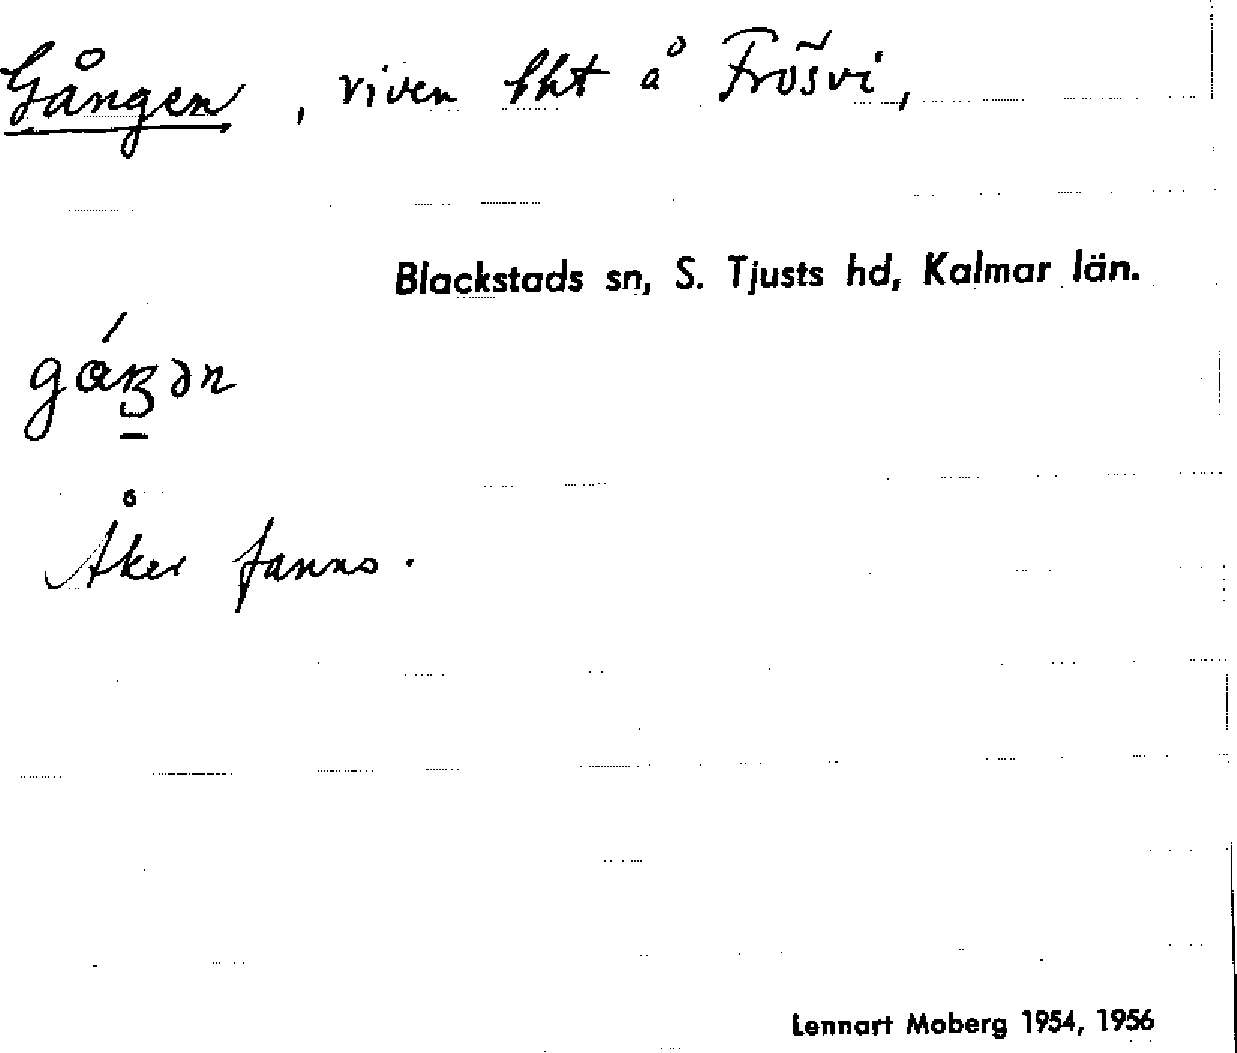 Gången, riven bht å Frösvi,
Blackstads sn, S. Tjusts hd, Kalmar län.
Åker fanns.
Lennart Moberg 1954, 1956